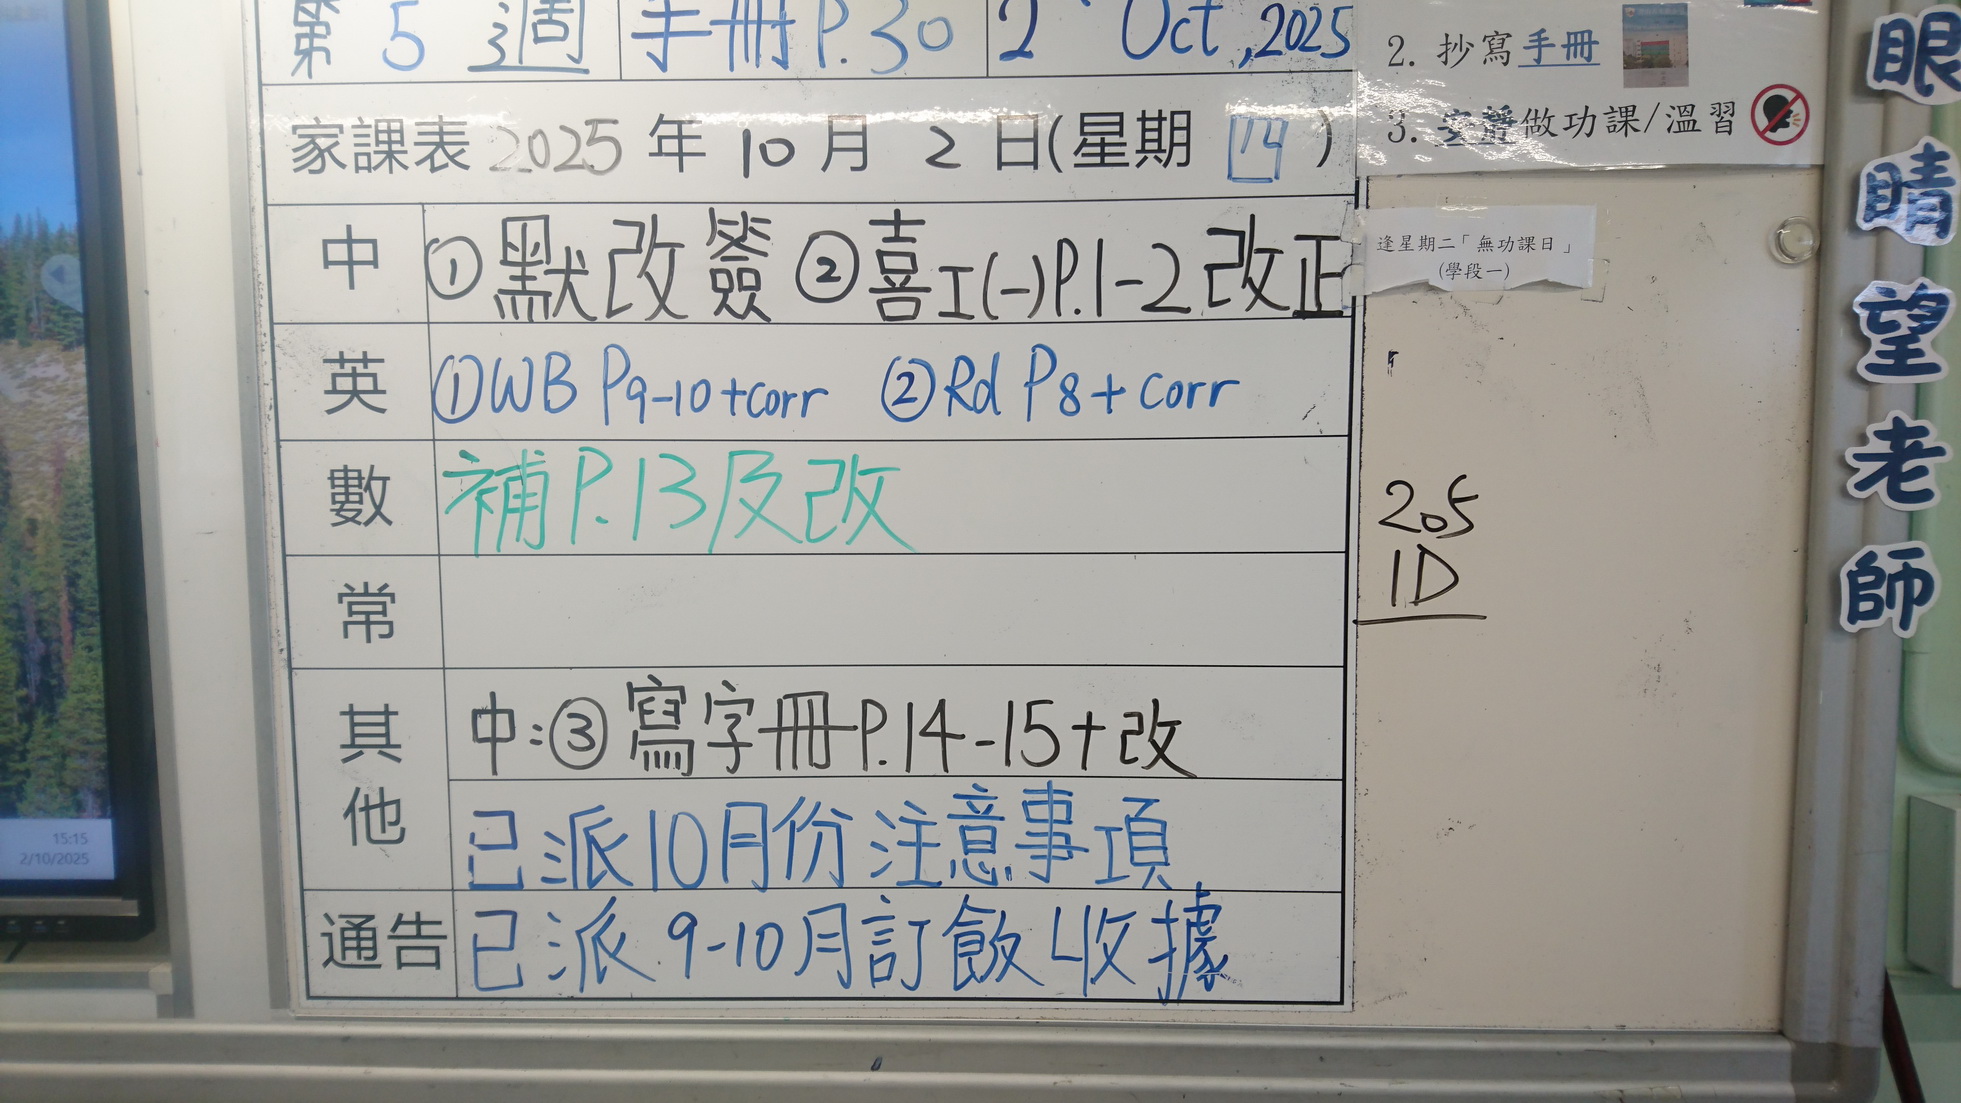 第5週 手冊P.30 2 Oct,2025
家課表 2025年10月2日(星期四)
中 ①默改簽 ②喜工(一)P.1-2改正
英 ①WB P9-10+corr ②Rd P8+corr
數 補P.13及改
常
其他 中:③寫字冊P.14-15+改
已派10月份注意事項
通告 已派9-10月訂飯收據
2. 抄寫手冊
3. 安靜做功課/溫習
逢星期二「無功課日」
(學段一)
205
1D
眼睛望老師
15:15
2/10/2025